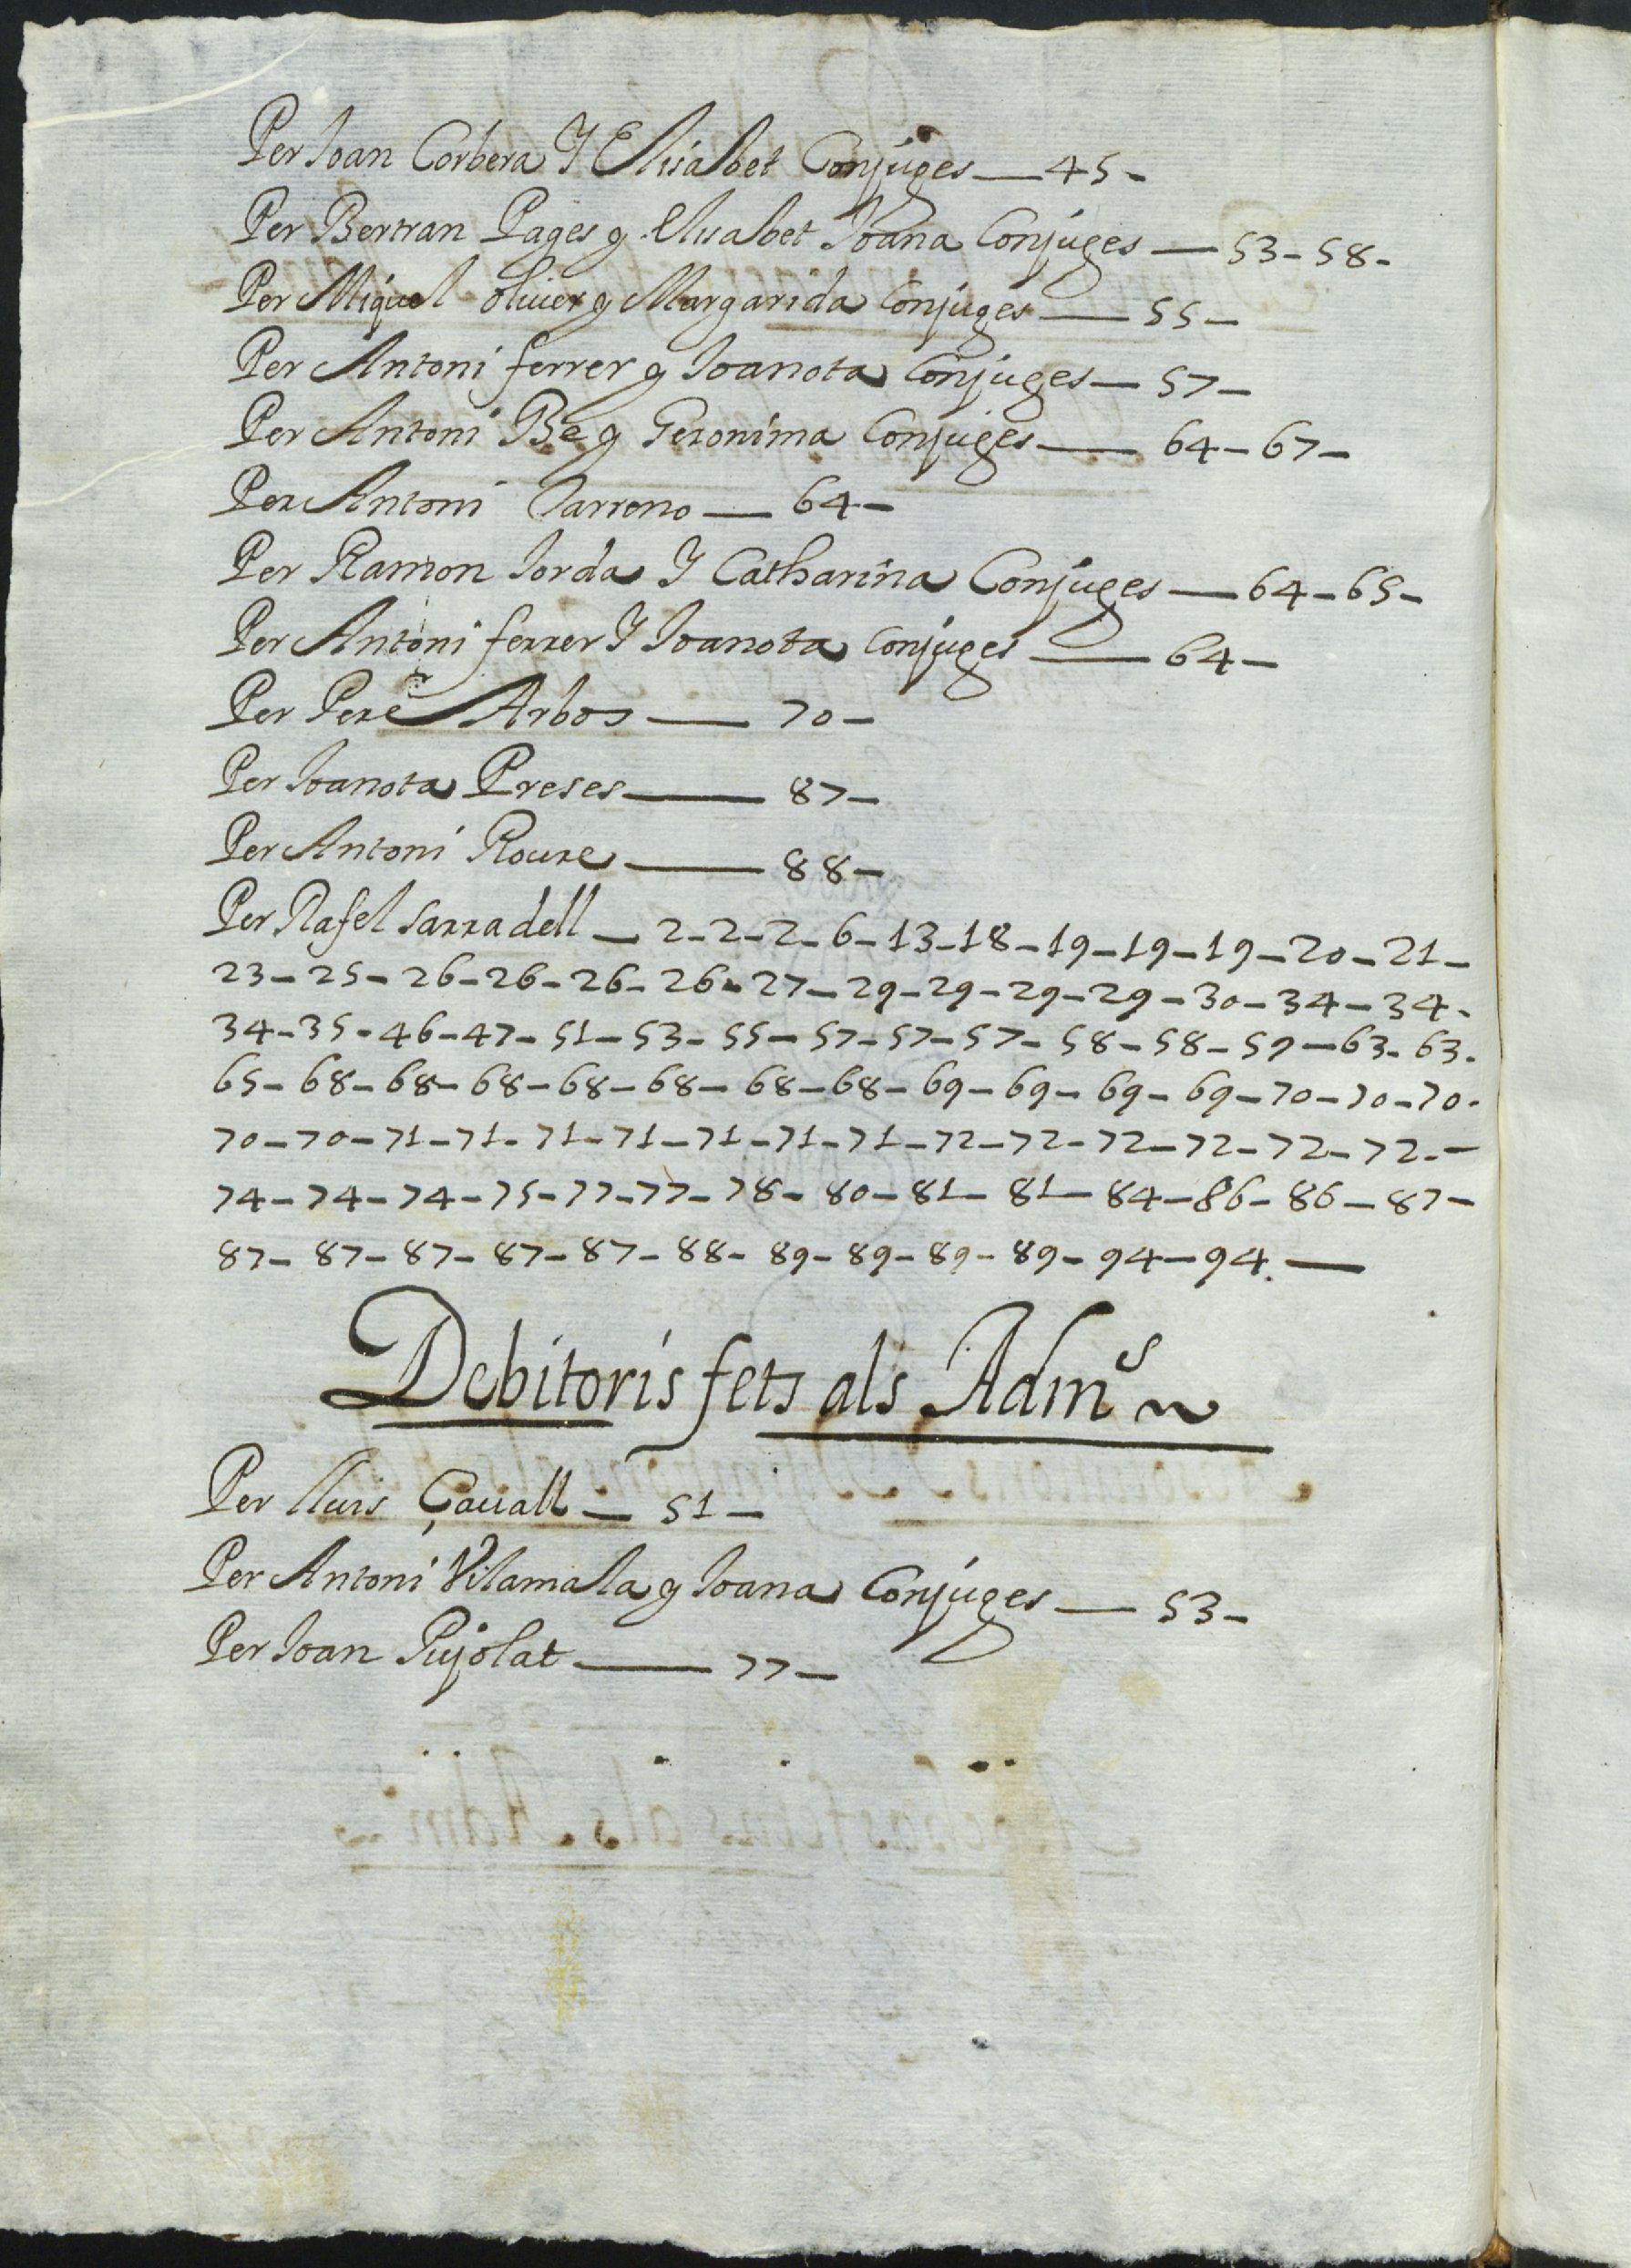 Per Ioan Corbera Y Elisabet Conjuges — 45 -
Per Bertran Pages y Elisabet Ioana Conjuges — 53 - 58 -
Per Miquel oliuer y Margarida Conjuges — 55 -
Per Antoni ferrer y Ioanota Conjuges — 57 -
Per Antoni Be y Geronima Conjuges — 64 - 67 -
Per Antoni Carreno — 64 -
Per Ramon Iorda Y Catharina Conjuges — 64 - 65 -
Per Antoni ferrer Y Ioanota Conjuges — 64 -
Per Pere Arbos — 70 -
Per Ioanota Preses — 87 -
Per Antoni Roure — 88 -
Per Rafel sarradell - 2 - 2 - 2 - 6 - 13 - 18 - 19 - 19 - 19 - 20 - 21 -
23 - 25 - 26 - 26 - 26 - 26 - 27 - 29 - 29 - 29 - 29 - 30 - 34 - 34 -
34 - 35 - 46 - 47 - 51 - 53 - 55 - 57 - 57 - 57 - 58 - 58 - 59 - 63 - 63 -
65 - 68 - 68 - 68 - 68 - 68 - 68 - 68 - 69 - 69 - 69 - 69 - 70 - 70 - 70 -
70 - 70 - 71 - 71 - 71 - 71 - 71 - 71 - 71 - 72 - 72 - 72 - 72 - 72 - 72 - -
74 - 74 - 74 - 75 - 77 - 77 - 78 - 80 - 81 - 81 - 84 - 86 - 86 - 87 -
87 - 87 - 87 - 87 - 87 - 88 - 89 - 89 - 89 - 89 - 94 - 94. —
Debitoris fets als Adm.s ~
Per lluis Çauall — 51 -
Per Antoni Vilamala y Ioana Conjuges — 53 -
Per Ioan Pujolat — 77 -